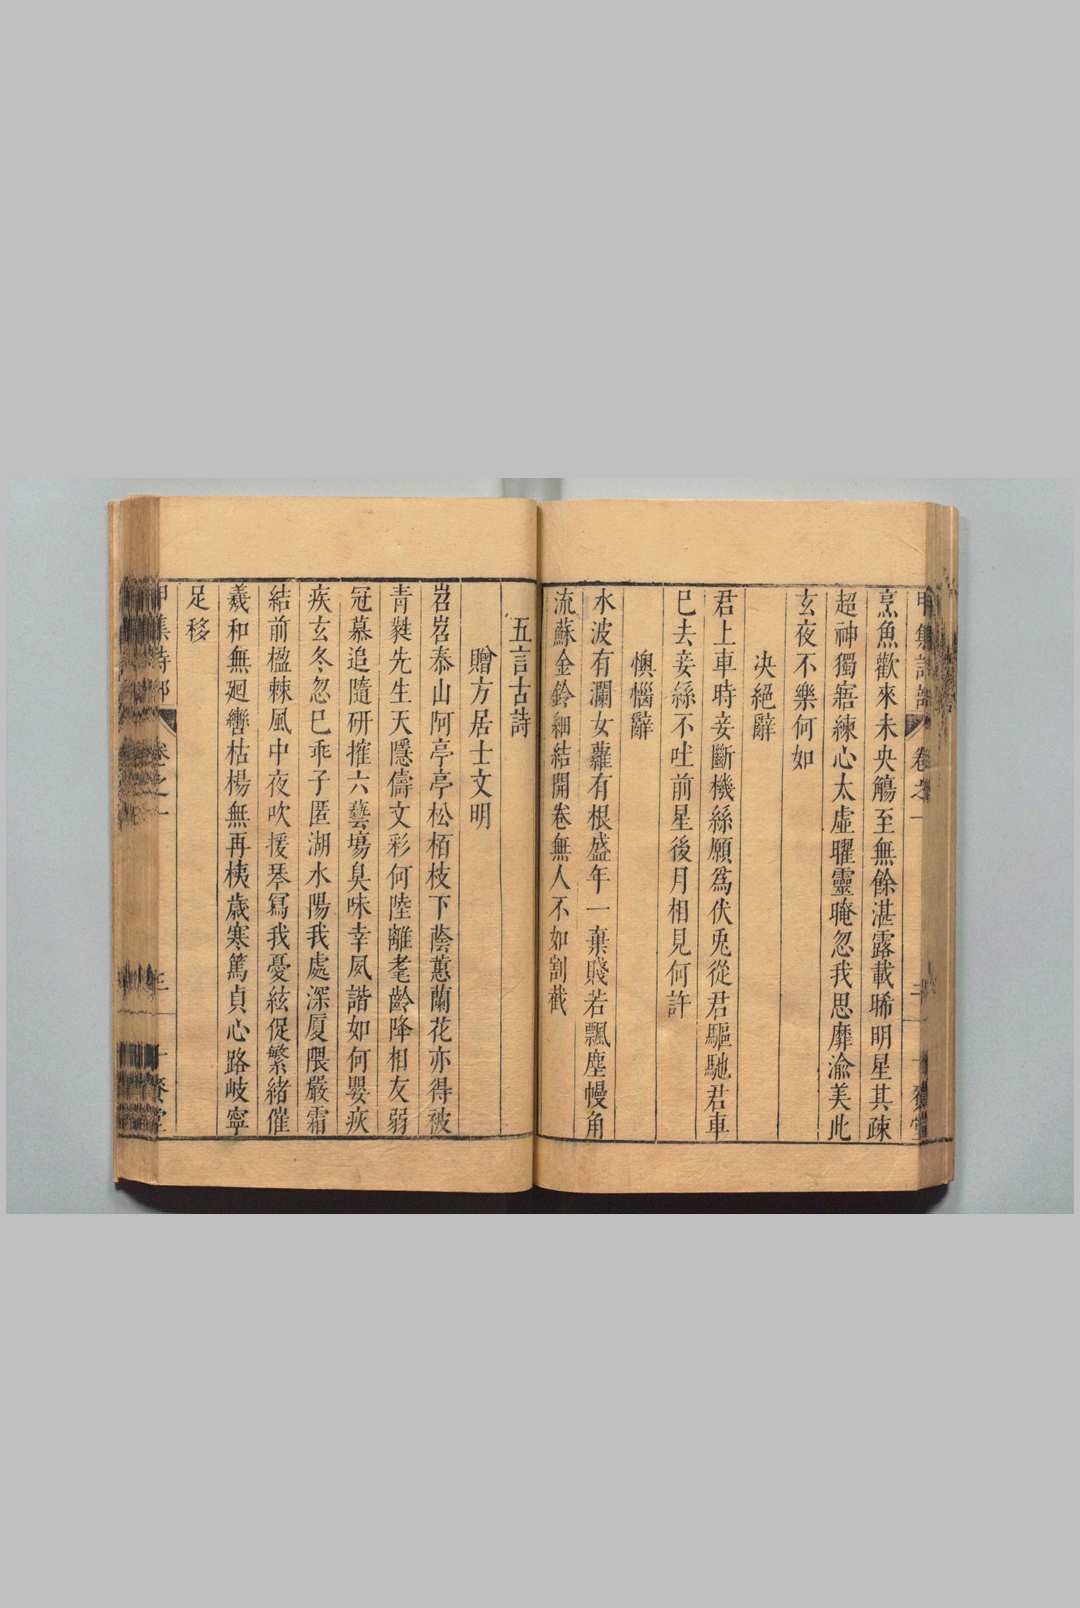 烹魚歡來未央觴至無餘湛露載晞明星其疎
超神獨寤練心太虛曜靈晻忽我思靡渝美此
玄夜不樂何如
決絕辭
君上車時妾斷機絲願爲伏兎從君驅馳君車
巳去妾絲不吐前星後月相見何許
懊惱辭
水波有瀾女蘿有根盛年一棄賤若飄塵幔角
流蘇金鈴細結開卷無人不如割截
五言古詩
贈方居士文明
岧岧泰山阿亭亭松栢枝下蔭蕙蘭花亦得被
青㲯先生天隱儔文彩何陸離耄齡降相友弱
冠慕追隨研摧六藝塲臭味幸夙諧如何嬰疢
疾玄冬忽巳乖子匿湖水陽我處深厦隈嚴霜
結前楹棘風中夜吹援琴寫我憂絃促繁緒催
羲和無廻轡枯楊無再荑歲寒篤貞心路岐寧
足移
甲集詩部 卷之一